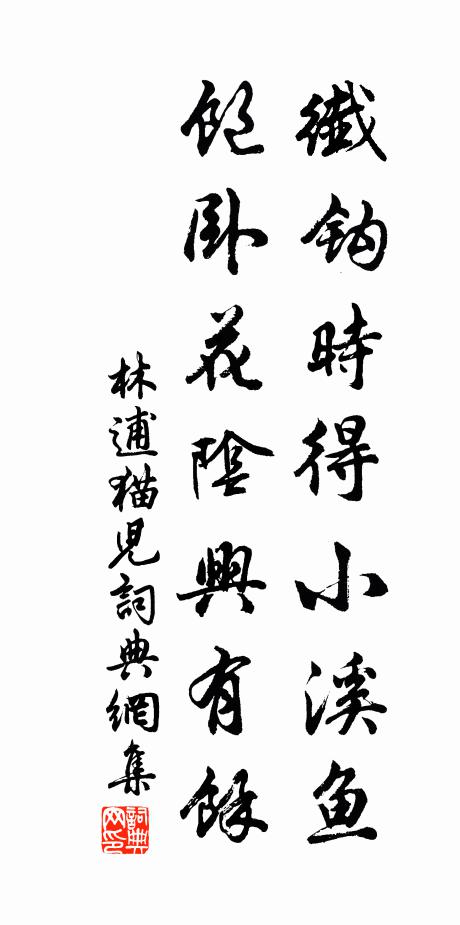 纖鈎時得小溪魚
飽卧花陰興有餘
林逋猫兒詞典網集
詞典网印